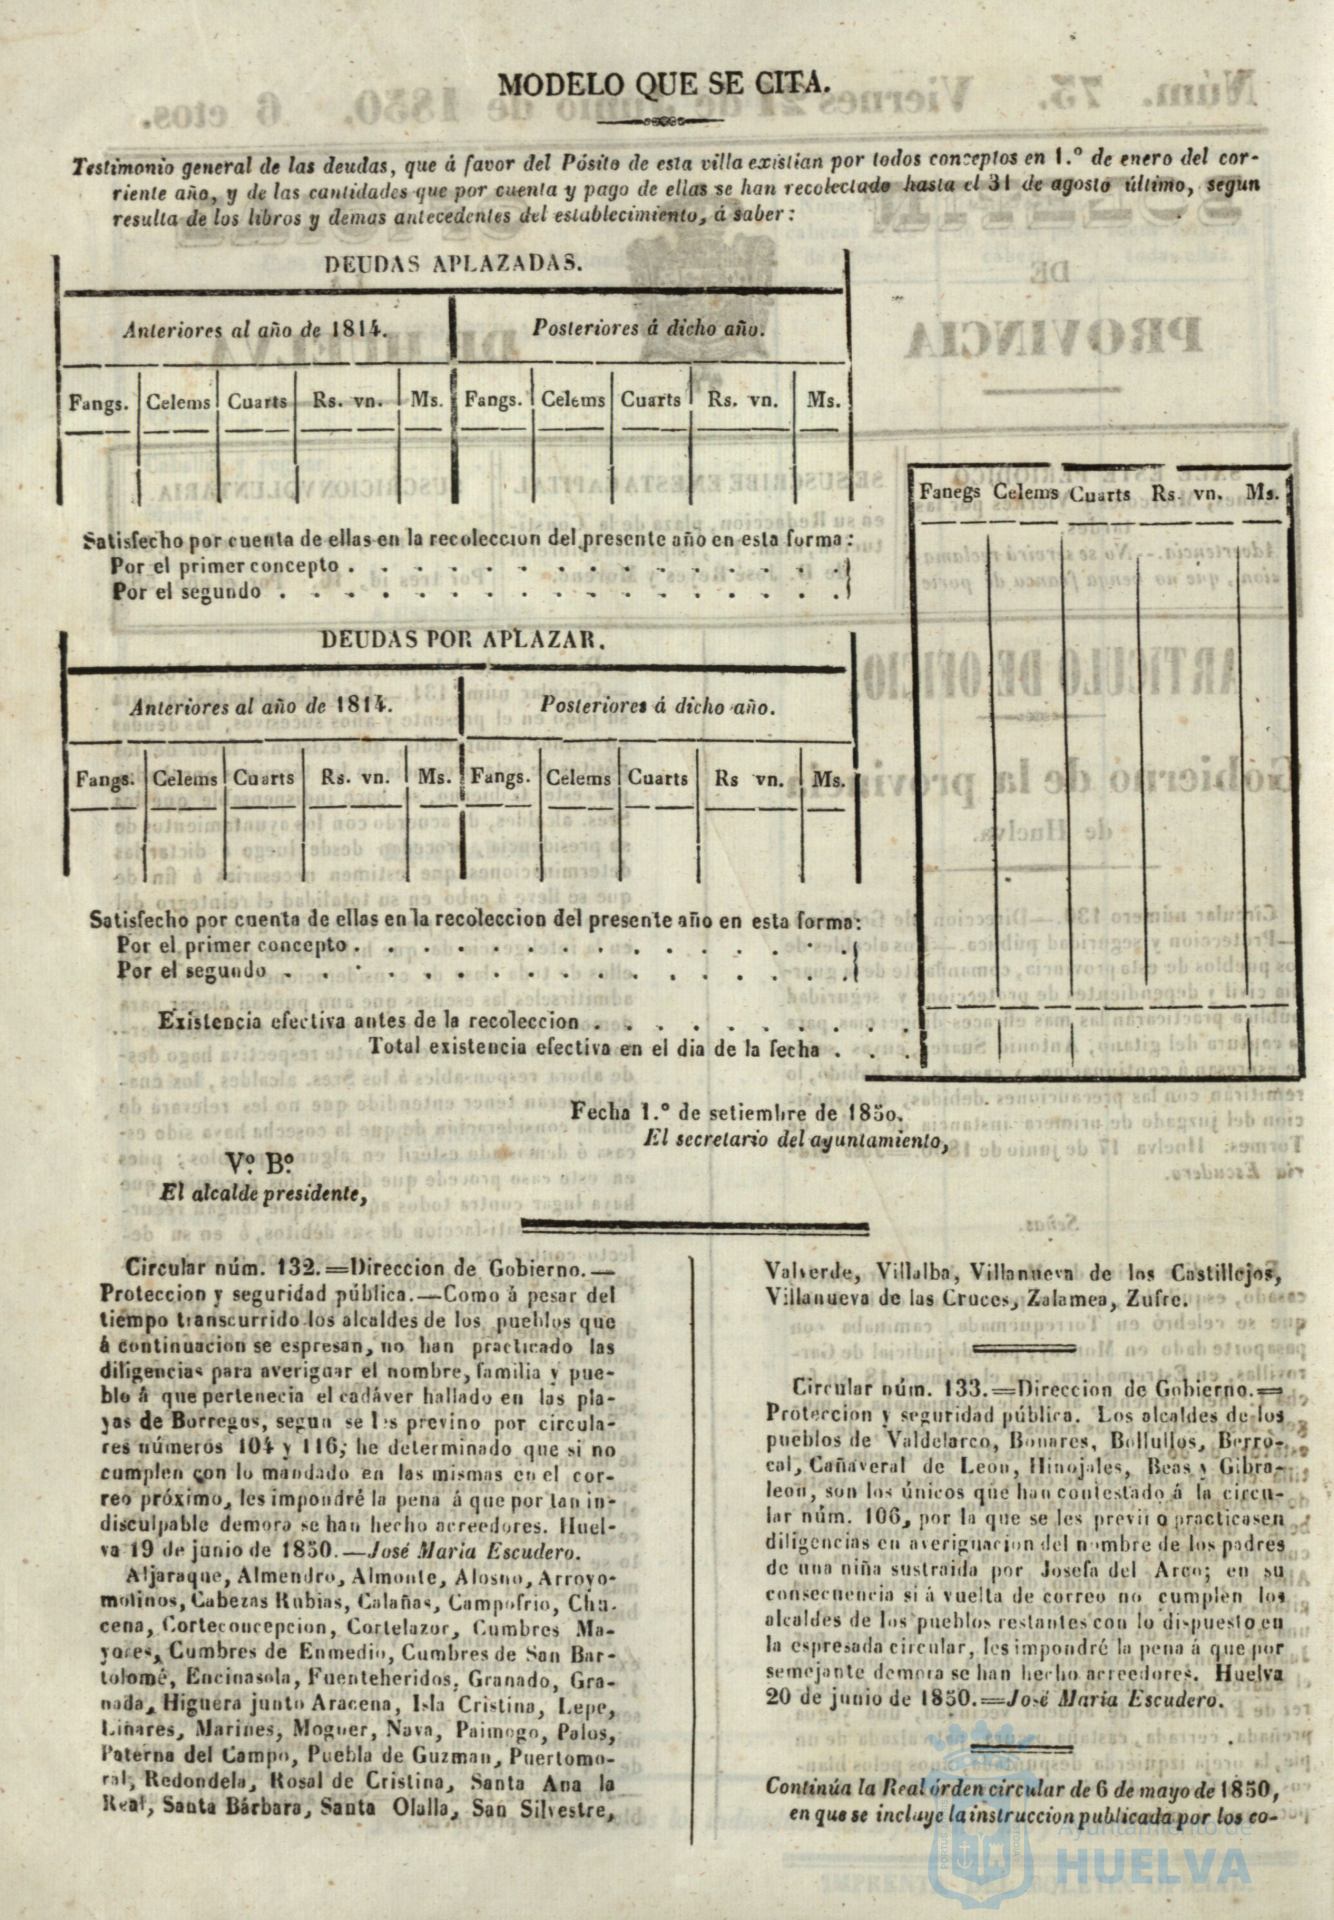 MODELO QUE SE CITA.
Testimonio general de las deudas, que á favor del Pósito de esta villa existian por todos conceptos en 1.º de enero del cor-
riente año, y de las cantidades que por cuenta y pago de ellas se han recolectado hasta el 31 de agosto último, segun
resulta de los libros y demas antecedentes del establecimiento, á saber:
DEUDAS APLAZADAS.
Anteriores al año de 1814. Posteriores á dicho año.
Fangs. Celems Cuarts Rs. vn. Ms. Fangs. Celems Cuarts Rs. vn. Ms.
Fanegs Celems Cuarts Rs. vn. Ms.
Satisfecho por cuenta de ellas en la recoleccion del presente año en esta forma:
Por el primer concepto . . . . . . . . . . . . . . . .
Por el segundo . . . . . . . . . . . . . . . . . .
DEUDAS POR APLAZAR.
Anteriores al año de 1814. Posteriores á dicho año.
Fangs. Celems Cuarts Rs. vn. Ms. Fangs. Celems Cuarts Rs vn. Ms.
Satisfecho por cuenta de ellas en la recoleccion del presente año en esta forma:
Por el primer concepto . . . . . . . . . . . . . . . .
Por el segundo . . . . . . . . . . . . . . . . . .
Existencia efectiva antes de la recoleccion . . . . . . . . . .
Total existencia efectiva en el dia de la fecha . . .
Fecha 1.º de setiembre de 185o.
El secretario del ayuntamiento,
Vº. Bº.
El alcalde presidente,
Circular núm. 132.=Direccion de Gobierno.—
Proteccion y seguridad pública.—Como á pesar del
tiempo transcurrido los alcaldes de los pueblos que
á continuacion se espresan, no han practicado las
diligencias para averiguar el nombre, familia y pue-
blo á que pertenecia el cadáver hallado en las pla-
yas de Borregos, segun se les previno por circula-
res números 104 y 116, he determinado que si no
cumplen con lo mandado en las mismas en el cor-
reo próximo, les impondré la pena á que por tan in-
disculpable demora se han hecho acreedores. Huel-
va 19 de junio de 1850.—José Maria Escudero.
Aljaraque, Almendro, Almonte, Alosno, Arroyo-
molinos, Cabezas Rubias, Calañas, Campofrio, Chu-
cena, Corteconcepcion, Cortelazor, Cumbres Ma-
yores, Cumbres de Enmedio, Cumbres de San Bar-
tolomé, Encinasola, Fuenteheridos, Granado, Gra-
nada, Higuera junto Aracena, Isla Cristina, Lepe,
Linares, Marines, Moguer, Nava, Paimogo, Palos,
Paterna del Campo, Puebla de Guzman, Puertomo-
ral, Redondela, Rosal de Cristina, Santa Ana la
Real, Santa Bárbara, Santa Olalla, San Silvestre,
Valverde, Villalba, Villanueva de los Castillejos,
Villanueva de las Cruces, Zalamea, Zufre.
Circular núm. 133.=Direccion de Gobierno.=
Proteccion y seguridad pública. Los alcaldes de los
pueblos de Valdelarco, Bonares, Bollullos, Berro-
cal, Cañaveral de Leon, Hinojales, Beas y Gibra-
leon, son los únicos que han contestado á la circu-
lar núm. 106, por la que se les previno practicasen
diligencias en averiguacion del nombre de los padres
de una niña sustraida por Josefa del Arco; en su
consecuencia si á vuelta de correo no cumplen los
alcaldes de los pueblos restantes con lo dispuesto en
la espresada circular, les impondré la pena á que por
semejante demora se han hecho acreedores. Huelva
20 de junio de 1850.=José Maria Escudero.
Continúa la Real órden circular de 6 de mayo de 1850,
en que se incluye la instruccion publicada por los co-
Ayuntamiento de
HUELVA